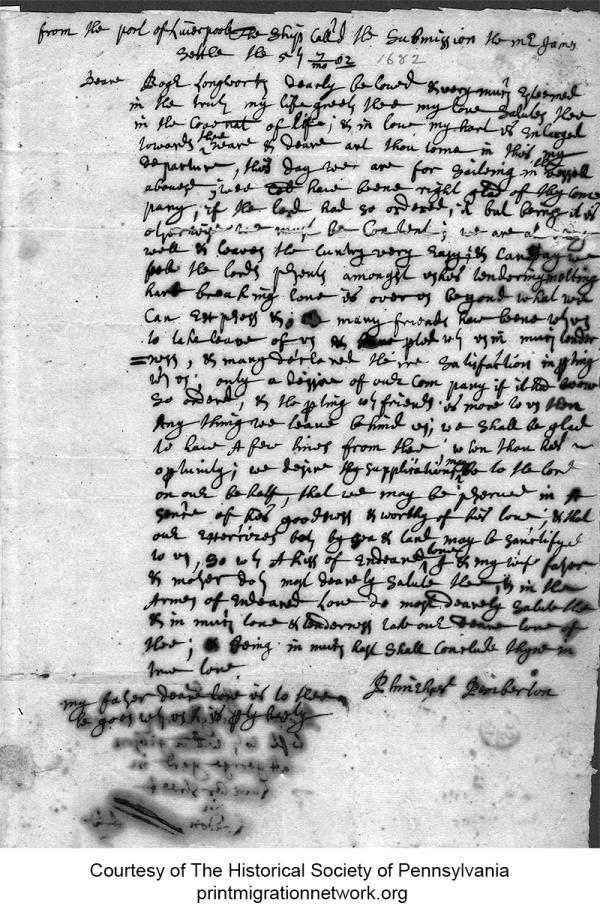 from the port of Liverpoole The Ship Calld the Submission the mr James
Settle the 5th 7/mo 82 1682
Deare Rogr Longworth dearly beloved & very much Esteemed
in the truth my life greets thee my love Salutes thee
in the Covenat of Life; & in love my hart is Enlarged
towards thee neare & deare art thou to me in this my
departure, this day we are for Saileing in the vessell
aboued; wee had have beene right glad of thy Com
pany, if the lord had so ordered, it but being it is
otherwise we must be Content; we are all
well & leaves the Cuntry very Easy; & Can say we
feele the lords presents amongst us his tendering melting
hart breaking love is over us beyond what we
Can Express &; many friends have beene wth us
to take leave of us & wth us in much tender
=ness, & many declared theire Satisfaction in pting
wth us; only a desire of our Company if it had beene
So ordered, & the pting wth friends is more to us then
Any thing we leave behind us; we shall be glad
to have A few lines from thee when thou hast
optunity; we desire thy Supplications may be to the lord
on our behalfe, that we may be preserved in A
sence of his goodness & worthy of his love; & that
our Exercizes both by Sea & land may be Sanctifyed
to us, So wth A kiss of Endeared love I & my wife father
& mother doth most dearely Salute thee, & in the
Armes of Endeared Love do most dearely Salute thee
& in much love & tenderness take our leave of
thee; Being in much hast Shall Conclude thyne in
true love
Phinehas Pemberton
my father deare love is to thee
he goes wth us &
Courtesy of The Historical Society of Pennsylvania
printmigrationnetwork.org